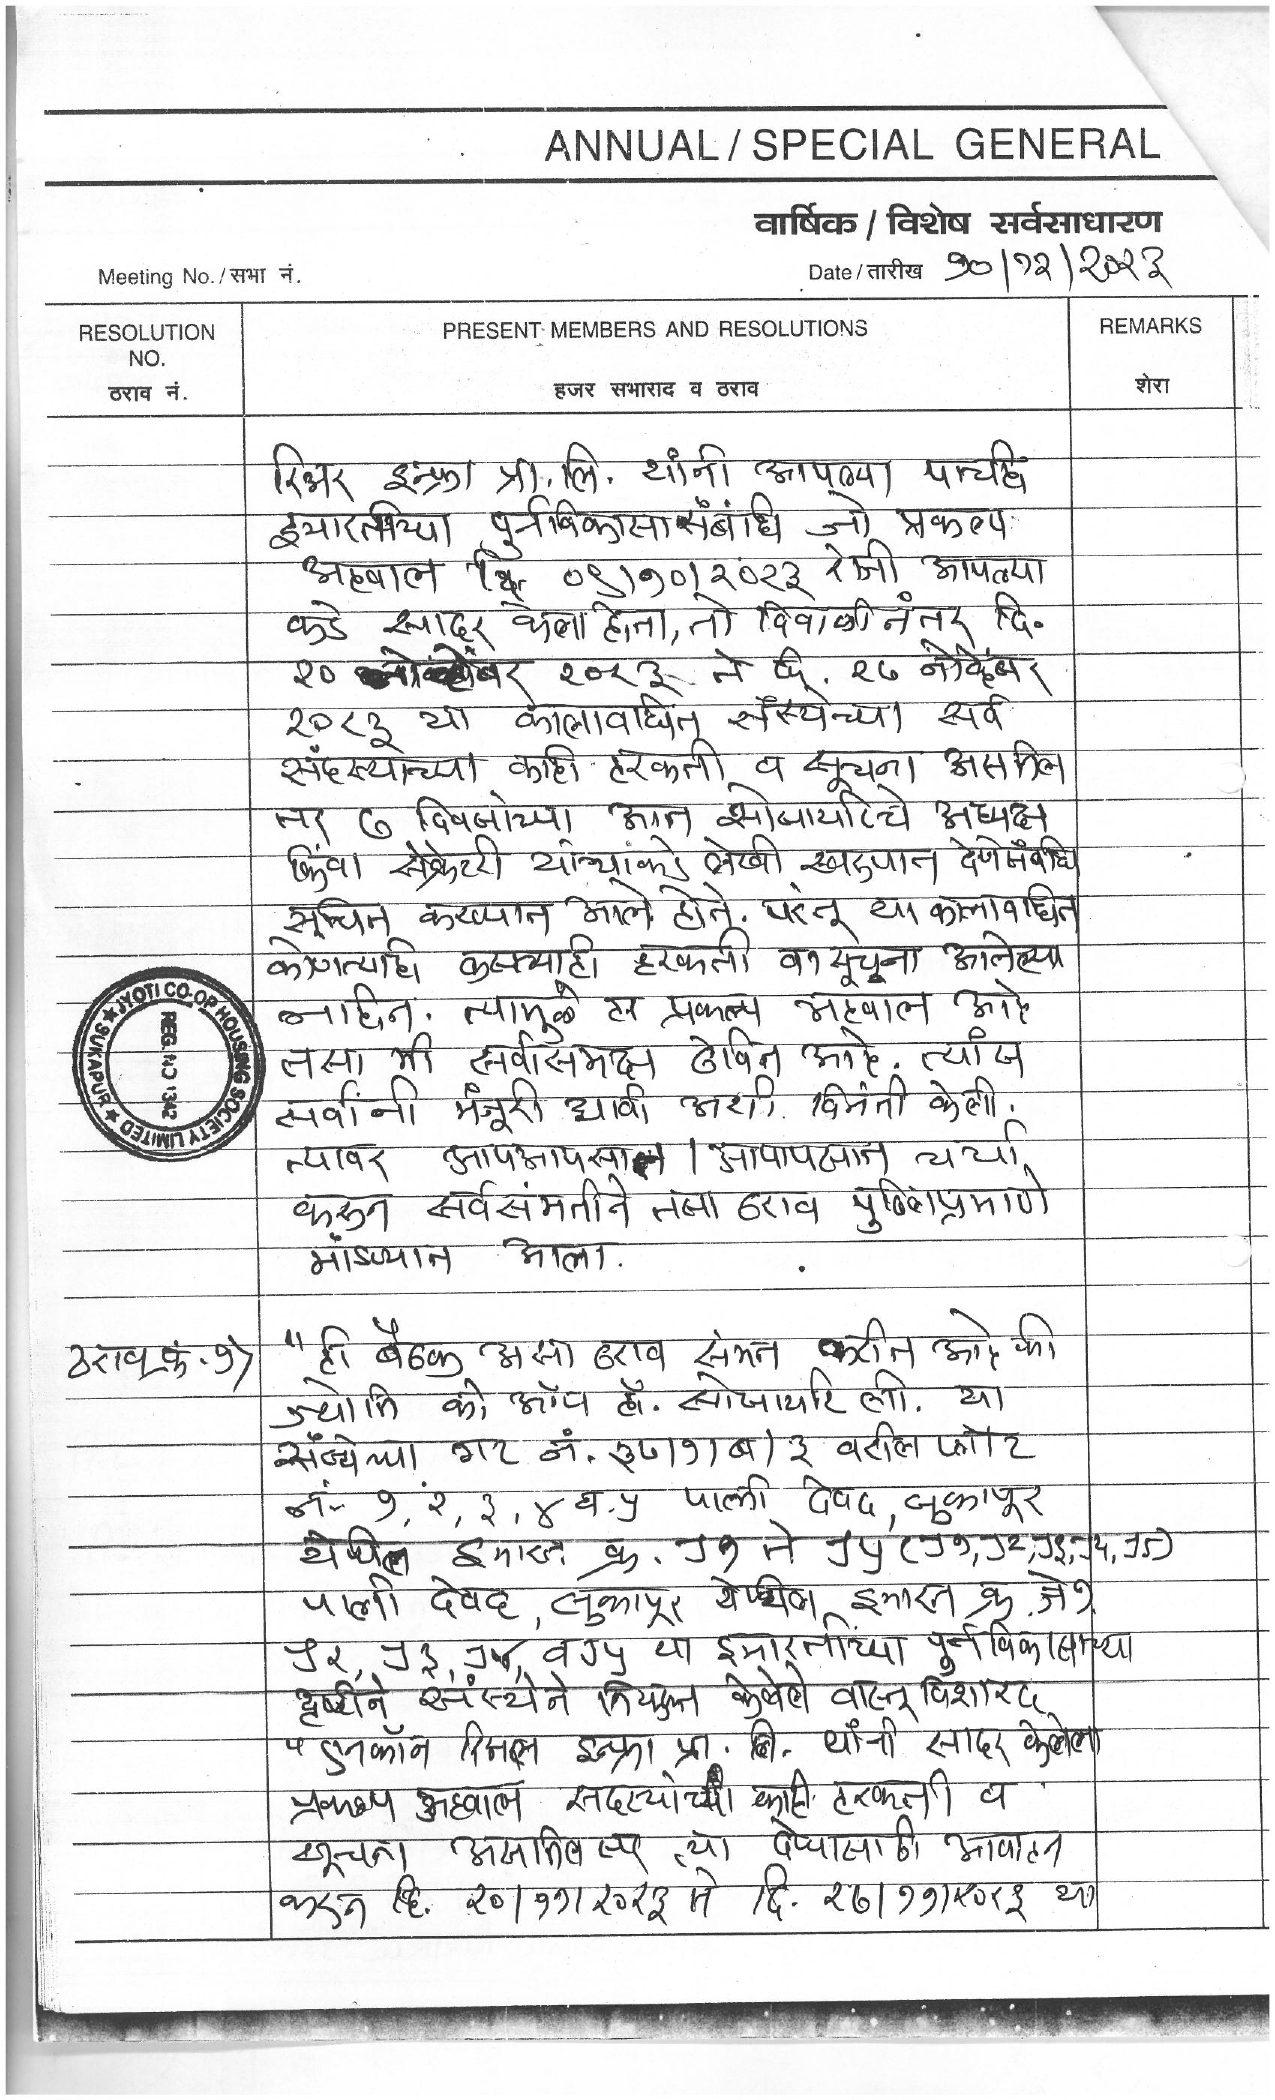 ANNUAL / SPECIAL GENERAL
वार्षिक / विशेष सर्वसाधारण
Meeting No. / सभा नं.
Date / तारीख १०/१२/२०२३
RESOLUTION NO.
ठराव नं.
PRESENT MEMBERS AND RESOLUTIONS
हजर सभासद व ठराव
REMARKS
शेरा
रिअर इन्फ्रा प्रा. लि. यांनी आपल्या पाचही
इमारतीच्या पुर्नविकासासंबंधि जो प्रकल्प
अहवाल दि. ०९/१०/२०२३ रोजी आपल्या
कडे सादर केला होता, तो दिवाळी नंतर दि.
२० नोव्हेंबर २०२३ ते दि. २७ नोव्हेंबर
२०२३ या कालावधित संस्थेच्या सर्व
सदस्यांच्या काही हरकती व सूचना असतील
तर ७ दिवसांच्या आत सोसायटिचे अध्यक्ष
किंवा सेक्रेटरी यांच्याकडे लेखी स्वरुपात देणेसंबंधि
सूचित करण्यात आले होते. परंतू या कालावधित
कोणत्याहि कसल्याही हरकती वा सूचना आलेल्या
नाहित. त्यामुळे हा प्रकल्प अहवाल आहे
तसा मी सर्वांसमक्ष ठेवित आहे. त्यांस
सर्वांनी मंजूरी द्यावी अशी विनंती केली.
त्यावर आपआपसात / आपापसात चर्चा
करून सर्वसंमतीने तसा ठराव पुढिलप्रमाणे
मांडण्यात आला.
ठराव क्रं. १) "ही बैठक असा ठराव संमत करीत आहे की
ज्योति को ऑप हौ. सोसायटि ली. या
संस्थेच्या गट नं. ३७/१/ब/३ वरील प्लॉट
नं- १, २, ३, ४ व ५ पाली देवद, सुकापूर
येथिल इमारत क्र. J१ ते J५ (J१, J२, J३, J४, J५)
पाली देवद, सुकापूर येथील इमारत क्र. जे१
J२, J३, J४, व J५ या इमारतींच्या पुर्नविकासाच्या
दृष्टीने संस्थेने नियुक्त केलेले वास्तू विशारद
" इनकॉन रिअल इन्फ्रा प्रा. लि. यांनी सादर केलेला
प्रकल्प अहवाल सदस्यांच्या काही हरकती व
सूचना असतील तर त्या देण्यासाठी आवाहन
करून दि. २०/११/२०२३ ते दि. २७/११/२०२३ या
JYOTI CO-OP HOUSING SOCIETY LIMITED
SUKAPUR
REG. NO 1342